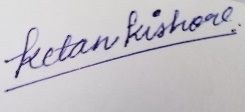 Ketan Kishore.